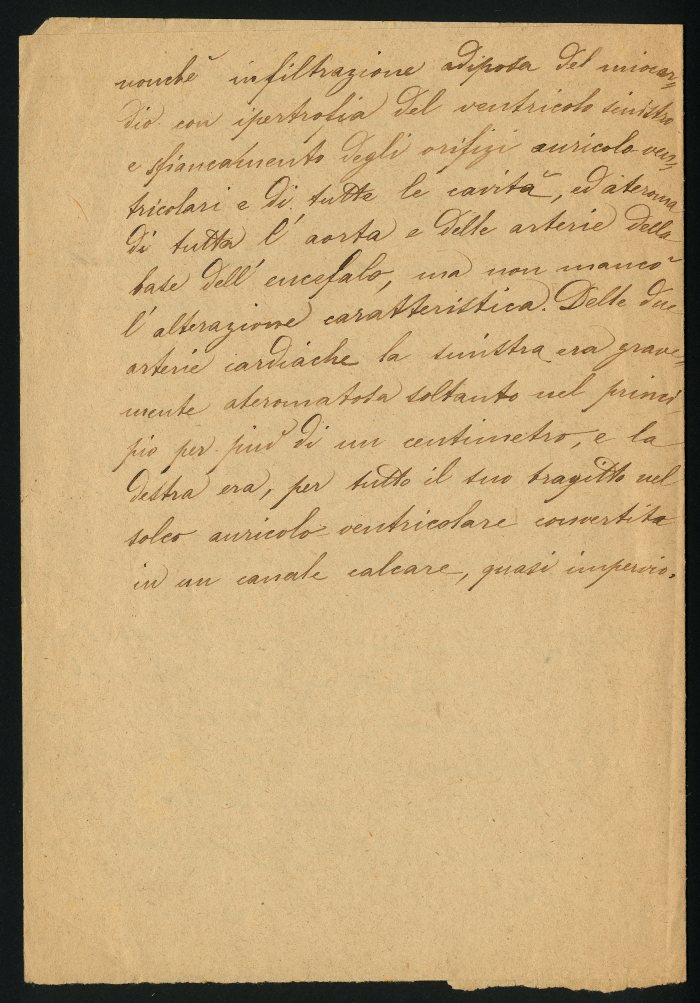 nonchè infiltrazione adiposa del miocar,
dio con ipertrofia del ventricolo sinistro
e sfiancamento degli orifizi auricolo-ven,
tricolari e di tutte le cavità, ed ateroma
di tutta l'aorta e delle arterie della
base dell'encefalo, ma non mancò
l'alterazione caratteristica. Delle due
arterie cardiache la sinistra era grave,
mente ateromatosa soltanto nel princi,
pio per più di un centimetro, e la
destra era, per tutto il suo tragitto nel
solco auricolo-ventricolare convertita
in un canale calcare, quasi impervio.